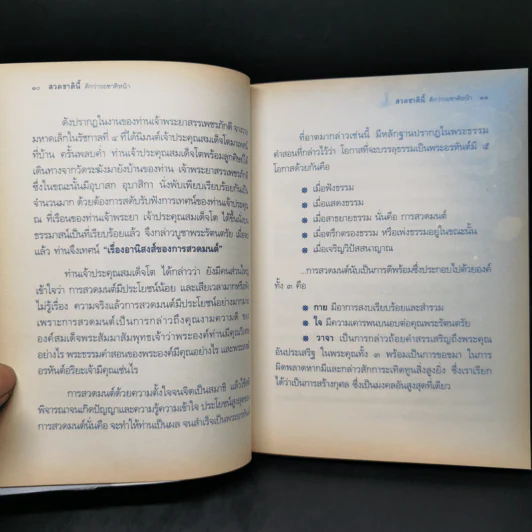 ๑๐ สวดชาตินี้ ดีกว่ารอชาติหน้า
ดังปรากฏในงานของท่านเจ้าพระยาสรรเพชรภักดี
มหาดเล็กในรัชกาลที่ ๔ ที่ได้นิมนต์เจ้าประคุณสมเด็จโต
ที่บ้าน ครั้นพลบค่ำ ท่านเจ้าประคุณสมเด็จโตพร้อมลูกศิษย์ได้
เดินทางจากวัดระฆังมายังบ้านของท่าน เจ้าพระยาสรรเพชรภักดี
ซึ่งในขณะนั้นมีอุบาสก อุบาสิกา นั่งพับเพียบเรียบร้อยกันเป็น
จำนวนมาก ด้วยต้องการสดับรับฟังการเทศน์ของท่านเจ้าประคุณ
ณ ที่เรือนของท่านเจ้าพระยา เจ้าประคุณสมเด็จโต ได้ขึ้นนั่งบน
ธรรมาสน์เป็นที่เรียบร้อยแล้ว จึงกล่าวบูชาพระรัตนตรัย เมื่อ
แล้ว ท่านจึงเทศน์ "เรื่องอานิสงส์ของการสวดมนต์"
ท่านเจ้าประคุณสมเด็จโต ได้กล่าวว่า ยังมีคนส่วนใหญ่
เข้าใจว่า การสวดมนต์มีประโยชน์น้อย และเสียเวลามากหรือฟัง
ไม่รู้เรื่อง ความจริงแล้วการสวดมนต์มีประโยชน์อย่างมากมาย
เพราะการสวดมนต์เป็นการกล่าวถึงคุณงามความดี ของ
องค์สมเด็จพระสัมมาสัมพุทธเจ้าว่าพระองค์ท่านมีคุณวิเศษ
อย่างไร พระธรรมคำสอนของพระองค์มีคุณอย่างไร และพระสงฆ์
อรหันต์อริยะเจ้ามีคุณเช่นไร
การสวดมนต์ด้วยความตั้งใจจนจิตเป็นสมาธิ แล้วใช้สติ
พิจารณาจนเกิดปัญญาและความรู้ความเข้าใจ ประโยชน์สูงสุดของ
การสวดมนต์นั่นคือ จะทำให้ท่านเป็นผล จนสำเร็จเป็นพระอรหันต์
สวดชาตินี้ ดีกว่ารอชาติหน้า ๑๑
ที่อาตมากล่าวเช่นนี้ มีหลักฐานปรากฏในพระธรรม
คำสอนที่กล่าวไว้ว่า โอกาสที่จะบรรลุธรรมเป็นพระอรหันต์มี ๕
โอกาสด้วยกันคือ
เมื่อฟังธรรม
เมื่อแสดงธรรม
เมื่อสาธยายธรรม นั่นคือ การสวดมนต์
เมื่อตรึกตรองธรรม หรือเพ่งธรรมอยู่ในขณะนั้น
เมื่อเจริญวิปัสสนาญาณ
...การสวดมนต์นับเป็นการดีพร้อมซึ่งประกอบไปด้วยองค์
ทั้ง ๓ คือ
กาย มีอาการสงบเรียบร้อยและสำรวม
ใจ มีความเคารพนบนอบต่อคุณพระรัตนตรัย
วาจา เป็นการกล่าวถ้อยคำสรรเสริญถึงพระคุณ
อันประเสริฐ ในพระคุณทั้ง ๓ พร้อมเป็นการขอขมา ในการ
ผิดพลาดหากมีและกล่าวสักการะเทิดทูนสิ่งสูงยิ่ง ซึ่งเราเรียก
ได้ว่าเป็นการสร้างกุศล ซึ่งเป็นมงคลอันสูงสุดที่เดียว